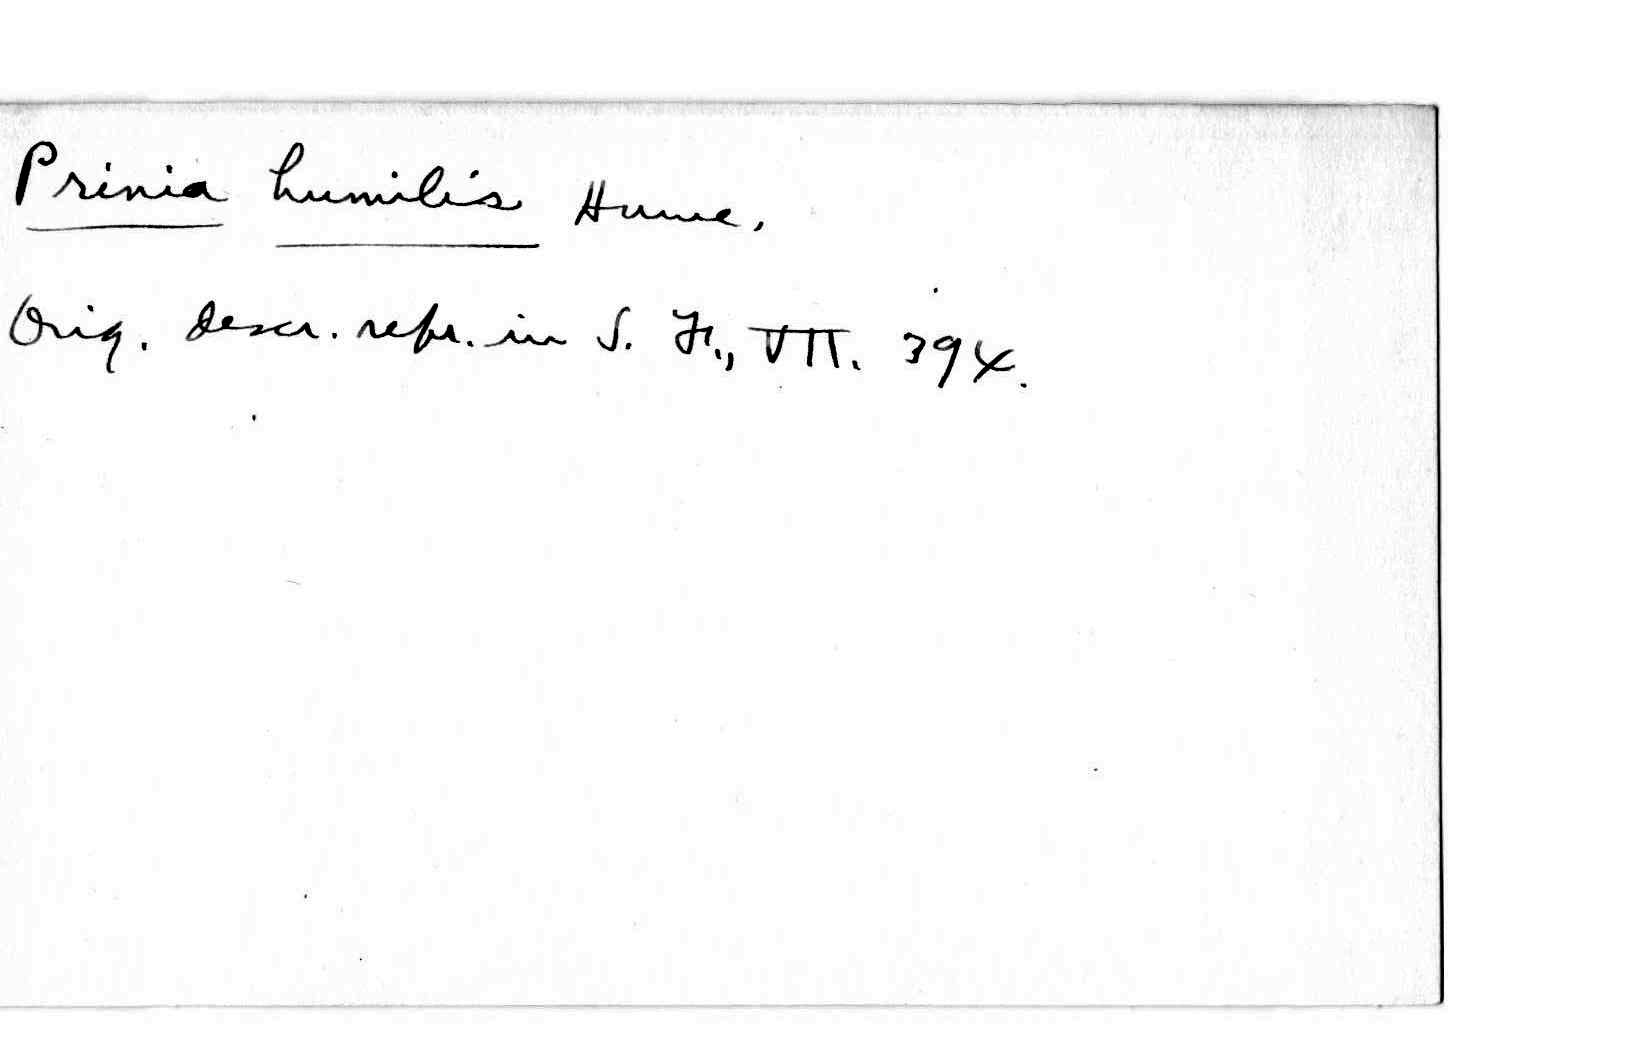 Prinia humilis Hume,
Orig. descr. repr. in S. F., VII. 394.